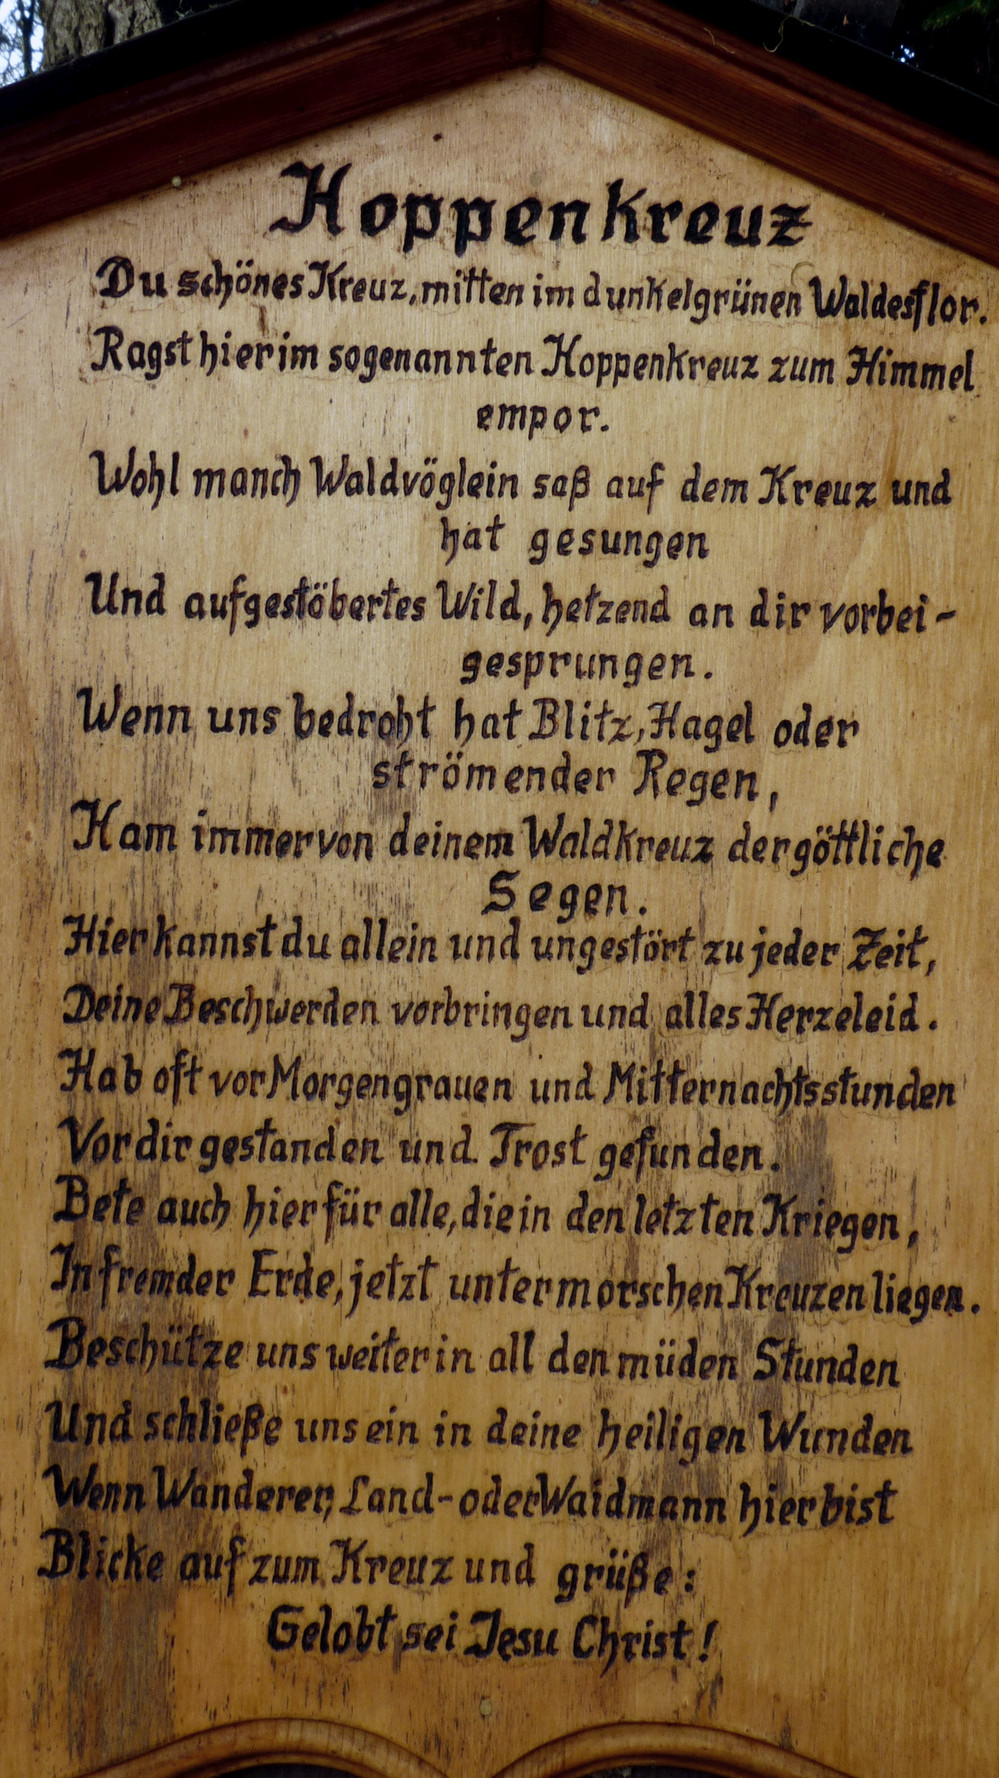 Hoppenkreuz
Du schönes Kreuz, mitten im dunkelgrünen Waldesflor.
Ragst hier im sogenannten Hoppenkreuz zum Himmel
empor.
Wohl manch Waldvöglein saß auf dem Kreuz und
hat gesungen
Und aufgestöbertes Wild, hetzend an dir vorbei-
gesprungen.
Wenn uns bedroht hat Blitz, Hagel oder
strömender Regen,
Kam immer von deinem Waldkreuz der göttliche
Segen.
Hier kannst du allein und ungestört zu jeder Zeit,
Deine Beschwerden vorbringen und alles Herzeleid.
Hab oft vor Morgengrauen und Mitternachtsstunden
Vor dir gestanden und Trost gefunden.
Bete auch hier für alle, die in den letzten Kriegen,
In fremder Erde, jetzt unter morschen Kreuzen liegen.
Beschütze uns weiter in all den müden Stunden
Und schließe uns ein in deine heiligen Wunden
Wenn Wanderer, Land- oder Waidmann hier bist
Blicke auf zum Kreuz und grüße:
Gelobt sei Jesu Christ!